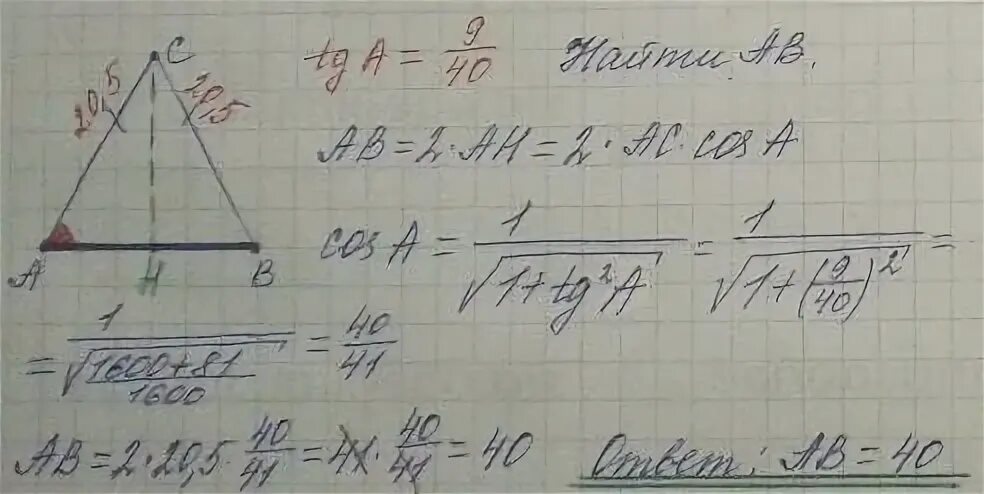 C
20,5 20,5
A H B
tg A = 9/40 Найти AB.
AB = 2·AH = 2·AC·cos A
cos A = 1/√(1+tg²A) = 1/√(1+(9/40)²) =
= 1/√((1600+81)/1600) = 40/41
AB = 2·20,5·40/41 = 41·40/41 = 40
Ответ: AB = 40